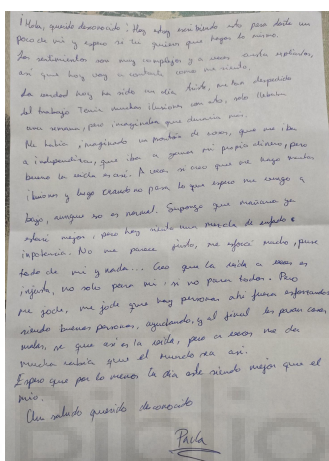 ¡Hola, querido desconocido! Hoy estoy escribiendo esto para darte un
poco de mí y espero si tu quieres que hagas lo mismo.
Los sentimientos son muy complejos y a veces cuesta explicarlos,
así que hoy voy a contarte como me siento.
La verdad hoy ha sido un día triste, me han despedido
del trabajo. Tenía muchas ilusiones con esto, solo llevaba
una semana, pero imaginaba que duraría más.
Me había imaginado un montón de cosas, que me iba
a independizar, que iba a ganar mi propio dinero, pero
bueno la vida es así. A veces si creo que me hago muchas
ilusiones y luego cuando no pasa lo que espero me vengo a
bajo, aunque eso es normal. Supongo que mañana ya
estaré mejor, pero hoy siento una mezcla de enfado e
impotencia. No me parece justo, me esforcé mucho, puse
todo de mí y nada... Creo que la vida a veces es
injusta, no solo para mí, si no para todos. Pero
me jode, me jode que hay personas ahí fuera esforzandose
siendo buenas personas, ayudando, y al final les pasan cosas
malas, se que así es la vida, pero a veces me da
mucha rabia que el mundo sea así.
Espero que por lo menos tu día este siendo mejor que el
mío.
Un saludo querido desconocido
Paula
biblio